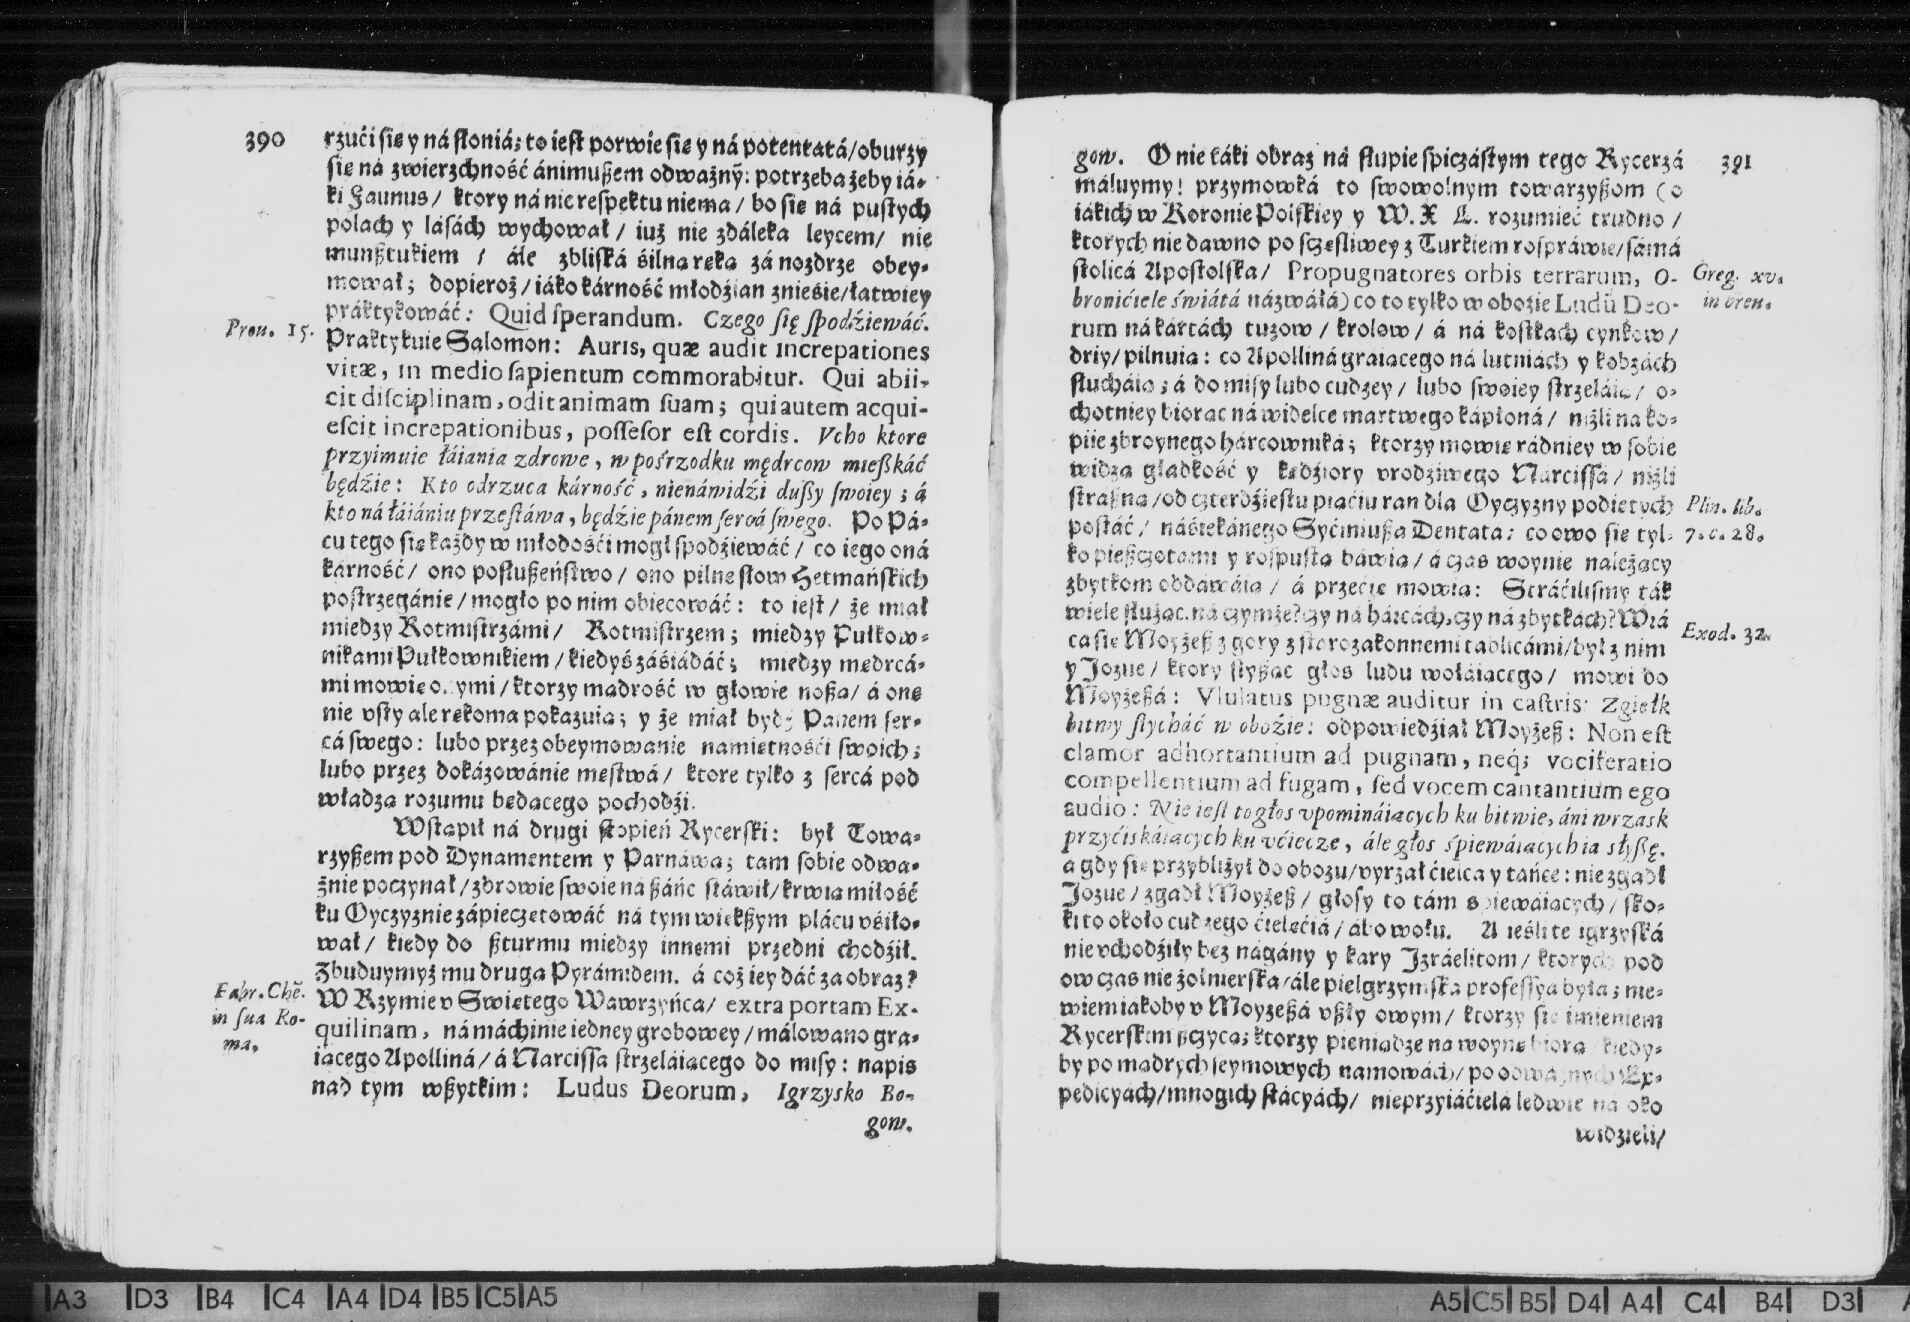 390
rzući się y ná słoniá; to iest porwie się y ná potentatá/oburzy
się ná zwierzchność ánimußem odważnỹ: potrzeba żeby iá-
ki Faunus/ ktory ná nic respektu niema/ bo się ná pustych
polach y lásách wychował/ iuż nie zdáleka leycem/ nie
munßtukiem / ále zbliská śilna ręka zá nozdrze obey-
mował; dopieroż/iáko kárność młodźian znieśie/łatwiey
práktykowáć: Quid sperandum. Czego się spodźiewáć.
Prou. 15.
Praktykuie Salomon: Auris, quæ audit increpationes
vitæ, in medio sapientum commorabitur. Qui abii-
cit disciplinam, odit animam suam; qui autem acqui-
escit increpationibus, possesor est cordis. Vcho ktore
przyimuie łáiania zdrowe, w pośrzodku mędrcow mießkáć
będźie: Kto odrzuca kárność, nienáwidźi dußy swoiey; á
kto ná łáiániu przestáwa, będźie pánem sercá swego. Po Pá-
cu tego się każdy w młodośći mogł spodźiewáć/ co iego oná
kárność/ ono posłußeństwo/ ono pilne słow Hetmańskich
postrzegánie/mogło po nim obiecowáć: to iest/ że miał
miedzy Rotmistrzámi/ Rotmistrzem; miedzy Pułkow-
nikami Pułkownikiem/kiedyś záśiádáć; miedzy mędrcá-
mi mowię ymi/ktorzy madrość w głowie noßa/ á onę
nie vsty ale rękoma pokazuia; y że miał bydź Panem ser-
cá swego: lubo przez obeymowanie namiętnośći swoich;
lubo przez dokázowánie męstwá/ ktore tylko z sercá pod
władza rozumu będacego pochodźi.
Wstapił ná drugi stopień Rycerski: był Towa-
rzyßem pod Dynamentem y Parnáwa; tam sobie odwa-
żnie poczynał/zdrowie swoie ná ßáńc stáwił/krwia miłość
ku Oyczyznie zápieczętowáć ná tym większym plácu vśiło-
wał/ kiedy do ßturmu miedzy innemi przedni chodźił.
Zbuduymyż mu druga Pyrámidem. á coż iey dáć za obraz?
Fabr. Chẽ.
in sua Ro-
ma.
W Rzymie v Swiętego Wawrzyńca/ extra portam Ex-
quilinam, ná máchinie iedney grobowey/málowano gra-
iacego Apolliná/á Narcissa strzeláiacego do misy: napis
nad tym wßytkim: Ludus Deorum, Igrzysko Bo-
gow.
391
gow. O nie táki obraz ná słupie spiczástym tego Rycerzá
máluymy! przymowká to swowolnym towarzyßom (o
iákich w Koronie Polskiey y W. X L. rozumieć trudno/
ktorych nie dawno po sczęśliwey z Turkiem rospráwie/sámá
stolicá Apostolska/ Propugnatores orbis terrarum, O-
Greg. xv.
in bren.
bronićiele świátá názwáłá) co to tylko w obozie Ludũ Deo-
rum ná kártách tuzow/krolow/ á ná kostkach cynkow/
driy/pilnuia: co Apolliná graiacego ná lutniách y kobzách
słucháia; á do misy lubo cudzey/ lubo swoiey strzeláia/ o-
chotniey biorac ná widelce martwego kápłoná/ niżli na ko-
piie zbroynego hárcowniká; ktorzy mowię rádniey w sobie
widza głádkość y kędźiory vrodziwego Narcissá/ niżli
straßna/od czterdźiestu piaćiu ran dla Oyczyzny podiętych
Plin. lib.
7. c. 28.
postáć/ náśiekánego Syćiniußa Dentata: co owo się tyl-
ko pießczotami y rospusta báwia/ á czas woynie należacy
zbytkom oddawáia/ á przećię mowia: Stráćilismy ták
wiele służac. ná czymże? czy ná hárcách, czy ná zbytkách? Wrá
Exod. 32.
ca się Moyżeß z gory z starozakonnemi tablicámi/był z nim
y Jozue/ ktory słyßac głos ludu wołáiacego/ mowi do
Moyżeßá: Vlulatus pugnæ auditur in castris: Zgiełk
bitwy słycháć w oboźie: odpowiedźiał Moyżeß: Non est
clamor adhortantium ad pugnam, neq; vociferatio
compellentium ad fugam, sed vocem cantantium ego
audio: Nie iest to głos vpomináiacych ku bitwie, áni wrzask
przyćiskáiacych ku vćiecze, ále głos śpiewáiacych ia słyßę.
a gdy się przybliżył do obozu/vyrzał ćielca y tańce: nie zgadł
Jozue/ zgadł Moyżeß/ głosy to tám śpiewáiacych/ sko-
ki to około cudzego ćielęćiá/ álbo wołu. A ieśli te igrzyská
nie vchodźiły bez nágány y kary Jzráelitom/ ktorych pod
ow czas nie żołnierska/ále pielgrzymska professya była; nie-
wiem iákoby v Moyżeßá vßły owym/ ktorzy się imieniem
Rycerskim ßczyca; ktorzy pieniądze na woynę biora kiedy-
by po madrych seymowych namowách/ po odwáżnych Ex-
pedicyách/mnogich stácyách/ nieprzyiáćielá ledwie na oko
widzieli/
A3 D3 B4 C4 A4 D4 B5 C5 A5
A5 C5 B5 D4 A4 C4 B4 D3